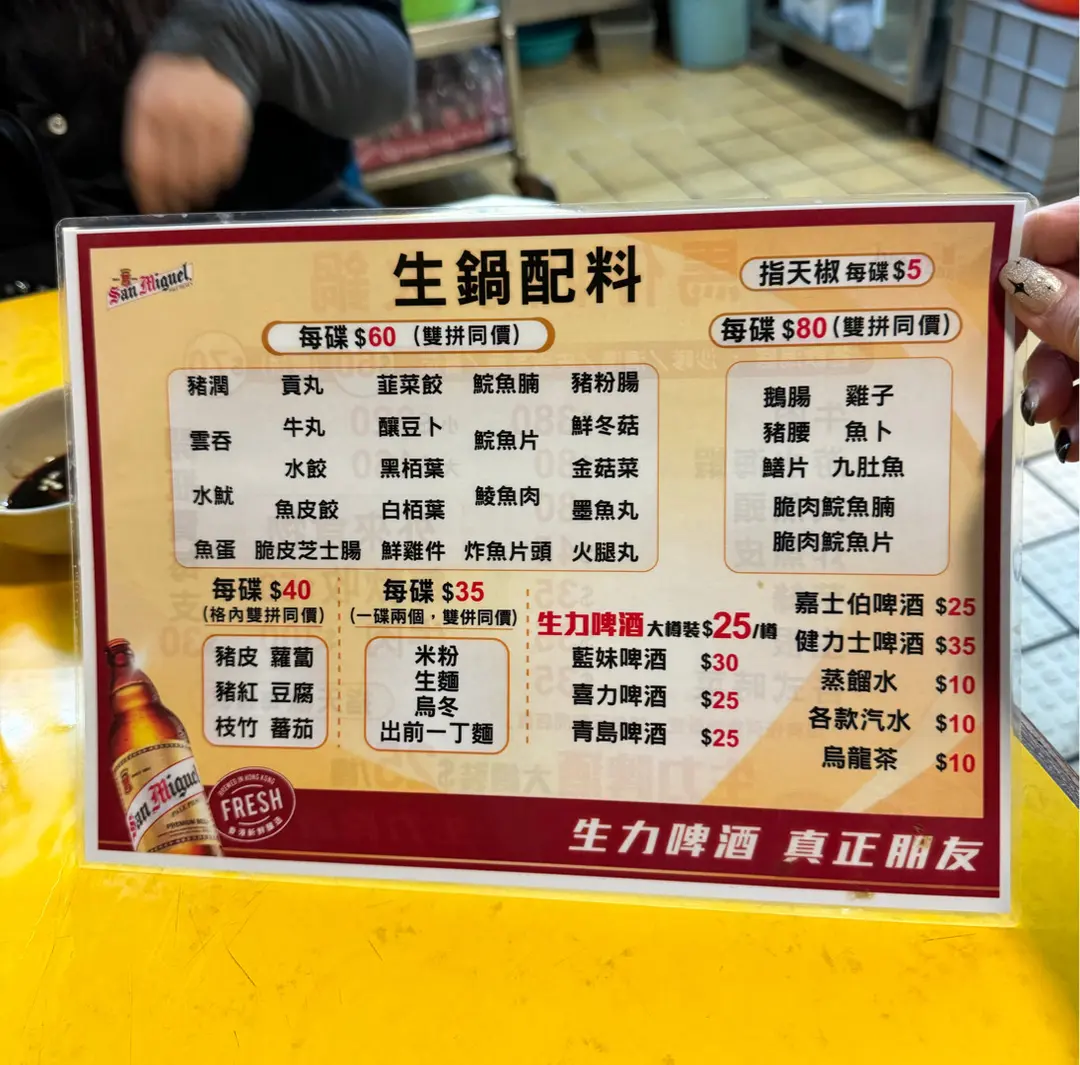 San Miguel
生鍋配料
指天椒 每碟 $5
每碟 $60 (雙拼同價)
豬潤 貢丸 韮菜餃 鯇魚腩 豬粉腸
雲吞 牛丸 釀豆卜 鯇魚片 鮮冬菇
水餃 黑栢葉 金菇菜
水魷 魚皮餃 白栢葉 鯪魚肉 墨魚丸
魚蛋 脆皮芝士腸 鮮雞件 炸魚片頭 火腿丸
每碟 $80 (雙拼同價)
鵝腸 雞子
豬腰 魚卜
鱔片 九肚魚
脆肉鯇魚腩
脆肉鯇魚片
每碟 $40
(格內雙拼同價)
豬皮 蘿蔔
豬紅 豆腐
枝竹 蕃茄
每碟 $35
(一碟兩個，雙併同價)
米粉
生麵
烏冬
出前一丁麵
生力啤酒 大樽裝$25/樽
藍妹啤酒 $30
喜力啤酒 $25
青島啤酒 $25
嘉士伯啤酒 $25
健力士啤酒 $35
蒸餾水 $10
各款汽水 $10
烏龍茶 $10
San Miguel
BREWED IN HONG KONG
FRESH
生力啤酒 真正朋友